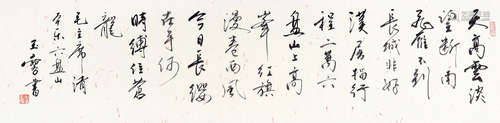 天高雲淡
望斷南
飛雁不到
長城非好
漢屈指行
程二萬六
盤山上高
峯紅旗
漫卷西風
今日長纓
在手何
時縛住蒼
龍
毛主席清
平乐六盘山
玉書